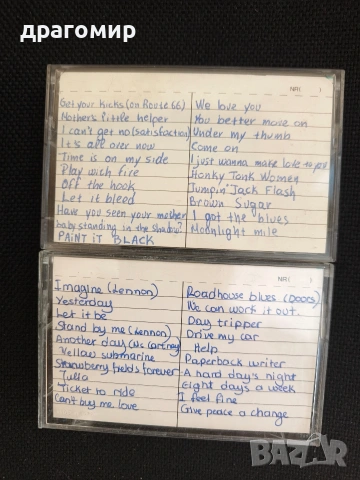 драгомир
NR I
Get your kicks (on Route 66)
Mother's little helper
I can't get no (satisfaction)
It's all over now
Time is on my side
Play with fire
Off the hook
Let it bleed
Have you seen your mother
baby standing in the shadow?
PAINT IT BLACK
We love you
You better move on
Under my thumb
Come on
I just wanna make love to you
Honky Tonk Women
Jumpin' Jack Flash
Brown Sugar
I got the blues
Moonlight mile
NR I
Imagine (Lennon)
Yesterday
Let it be
Stand by me (Lennon)
Another day (Mc Cartney)
Yellow submarine
Strawberry fields forever
Julia
Ticket to ride
Can't buy me love
Roadhouse blues (Doors)
We can work it out.
Day tripper
Drive my car
Help
Paperback writer
A hard day's night
Eight days a week
I feel fine
Give peace a change
bazar